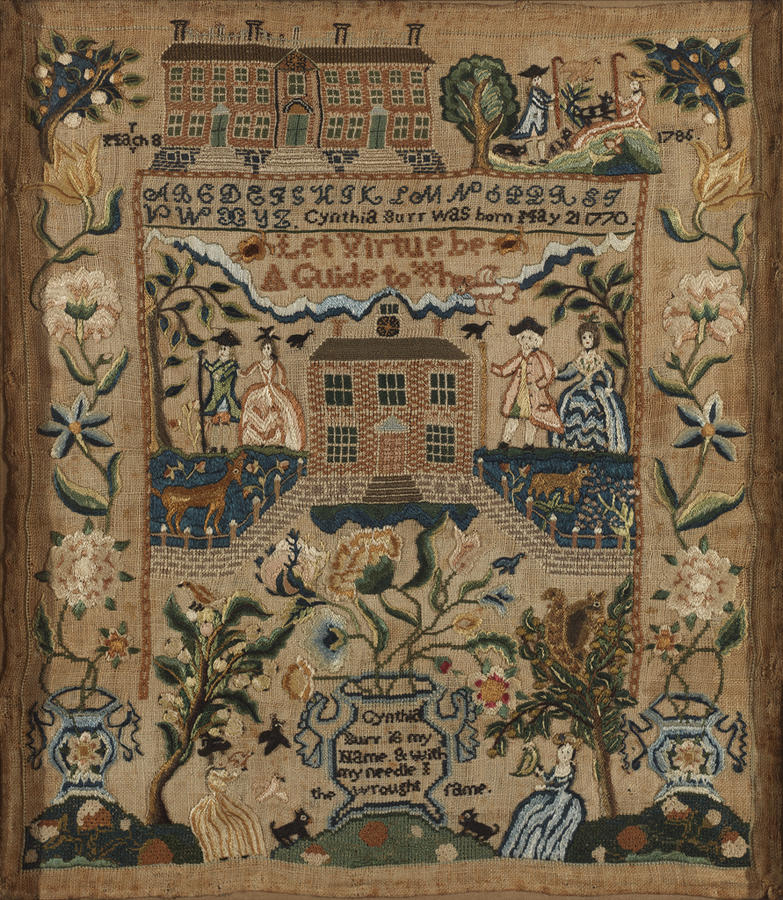 March 8 1786.
A B C D E F G H I K L M N O P Q R S T
V W X Y Z. Cynthia Burr was born May 21 1770.
Let Virtue be
A Guide to The
Cynthia
Burr is my
Name & with
my needle I
the wrought fame.